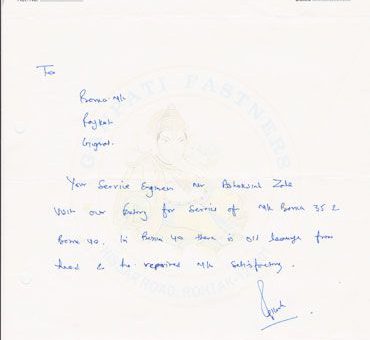 To
Borna m/c
Rajkot
Gujrat.
Your Service Engineer mr Ashokval Zala
Visit our factory for Service of m/c Borna 35 2
Borna 40. In Borna 40 there is oil leakage from
head & he repaired m/c satisfactory.
PATI PARTNERS
ROAD, ROHTAK